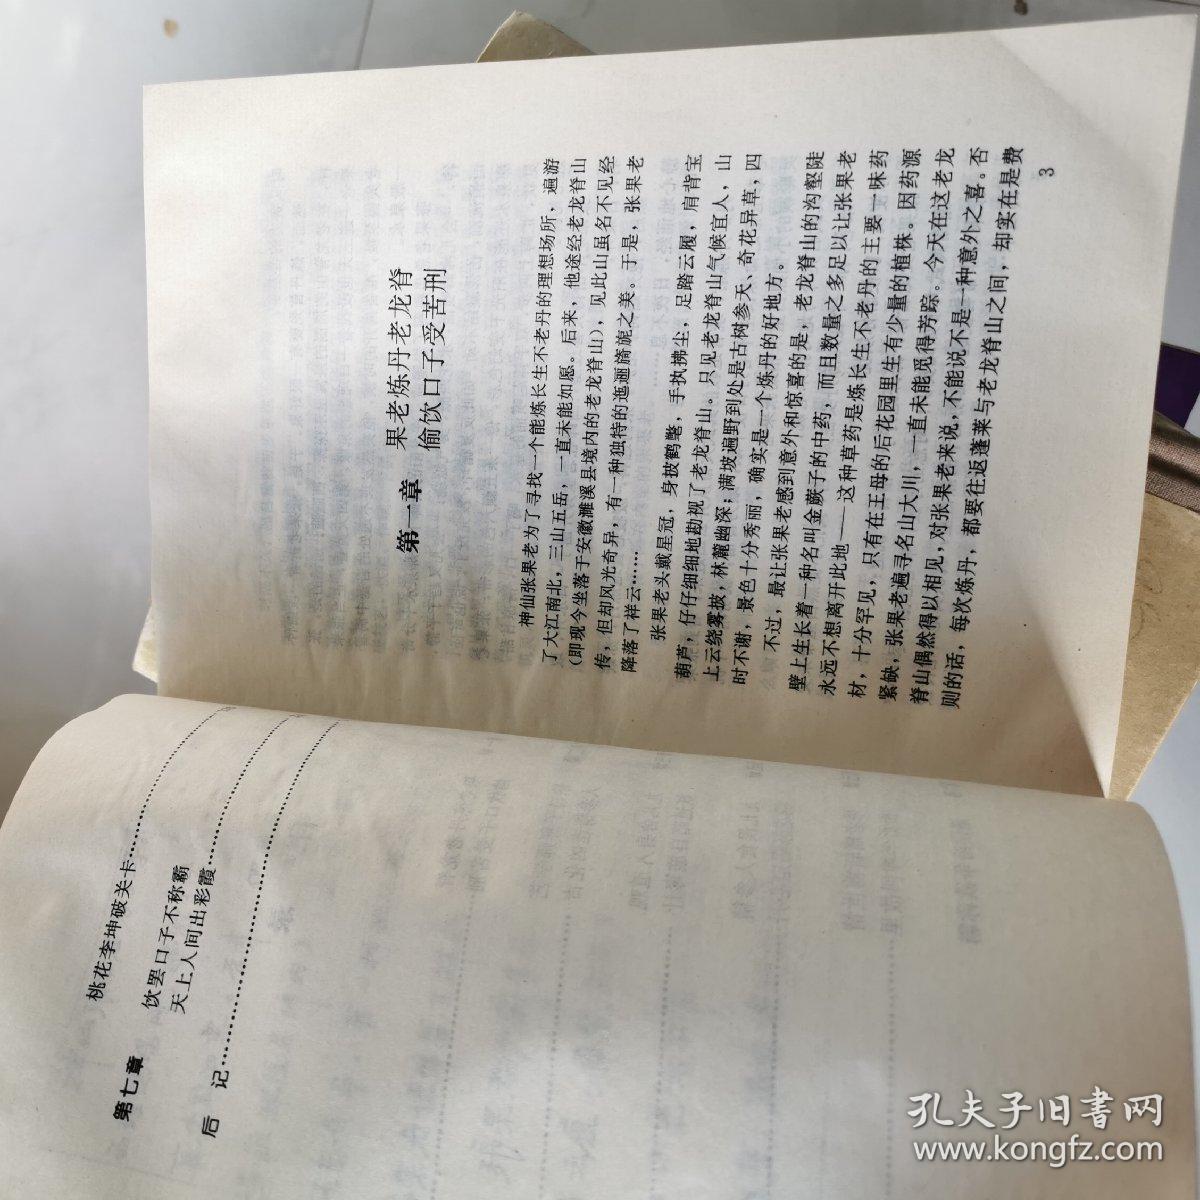 桃花李坤破关卡……………………
第七章 饮罢口子不称霸
天上人间出彩霞……………………
后 记……………………
第一章 果老炼丹老龙脊
偷饮口子受苦刑
神仙张果老为了寻找一个能炼长生不老丹的理想场所，遍游
了大江南北，三山五岳，一直未能如愿。后来，他途经老龙脊山
（即现今坐落于安徽濉溪县境内的老龙脊山），见此山虽名不见经
传，但却风光奇异，有一种独特的迤逦旖旎之美。于是，张果老
降落了祥云……
张果老头戴星冠，身披鹤氅，手执拂尘，足踏云履，肩背宝
葫芦，仔仔细细地勘视了老龙脊山。只见老龙脊山气候宜人，山
上云绕雾披，林麓幽深；满坡遍野到处是古树参天、奇花异草，四
时不谢，景色十分秀丽，确实是一个炼丹的好地方。
不过，最让张果老感到意外和惊喜的是，老龙脊山的沟壑陡
壁上生长着一种名叫金蕨子的中药，而且数量之多足以让张果老
永远不想离开此地——这种草药是炼长生不老丹的主要一味药
材，十分罕见，只有在王母的后花园里生有少量的植株。因药源
紧缺，张果老遍寻名山大川，一直未能觅得芳踪。今天在这老龙
脊山偶然得以相见，对张果老来说，不能说不是一种意外之喜。否
则的话，每次炼丹，都要往返蓬莱与老龙脊山之间，却实在是费
3
孔夫子旧书网
www.kongfz.com